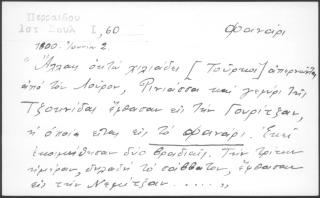 Περραιβού
Ιστ Σουλ Ι, 60
φανάρι
1800. Ιουνίου 2.
"Άλλαι οκτώ χιλιάδες [Τούρκοι] απερνώντας
από τον Λούρον, Ρινιάσσα και γεφύρι της
Τζουκνίδας έφθασαν εις την Γουρίτζαν,
ή οποία είναι εις το φανάρι. Εκεί
εκοιμήθησαν δύο βραδιαίς. Την τρίτην
ημέραν, δηλαδή το σάββατον, έφθασαν
εις την Νεμίτζαν......"